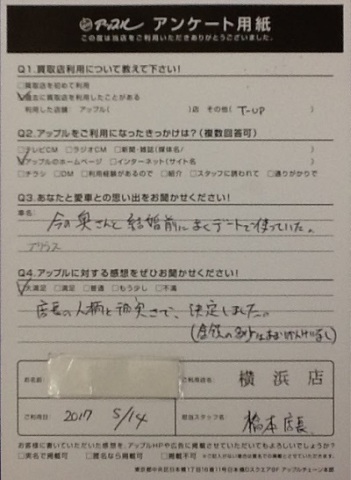 アップル アンケート用紙
この度は当店をご利用いただきありがとうございました。
Q1.買取店利用について教えて下さい!
□買取店を初めて利用
□過去に買取店を利用したことがある
利用した店舗 アップル( )店 その他( T-UP )
Q2.アップルをご利用になったきっかけは?(複数回答可)
□テレビCM □ラジオCM □新聞・雑誌(媒体名/ )
□アップルのホームページ □インターネット(サイト名 )
□チラシ □DM □利用経験があるので □紹介 □スタッフに誘われて □通りがかりで
Q3.あなたと愛車との思い出をお聞かせください!
車名:
今の奥さんと結婚前によくデートで使っていた。
プリウス
Q4.アップルに対する感想をぜひお聞かせください!
□大満足 □満足 □普通 □もう少し □不満
店長の人柄と誠実さで、決定しました。
お名前
ご利用店名 横浜店
ご利用日 2017 5/14
担当スタッフ名 橋本店長
お客様に書いていただいた感想を、アップルHPや広告に掲載させていただいてもよろしいでしょうか?
□実名で掲載可 □匿名なら掲載可 □掲載不可